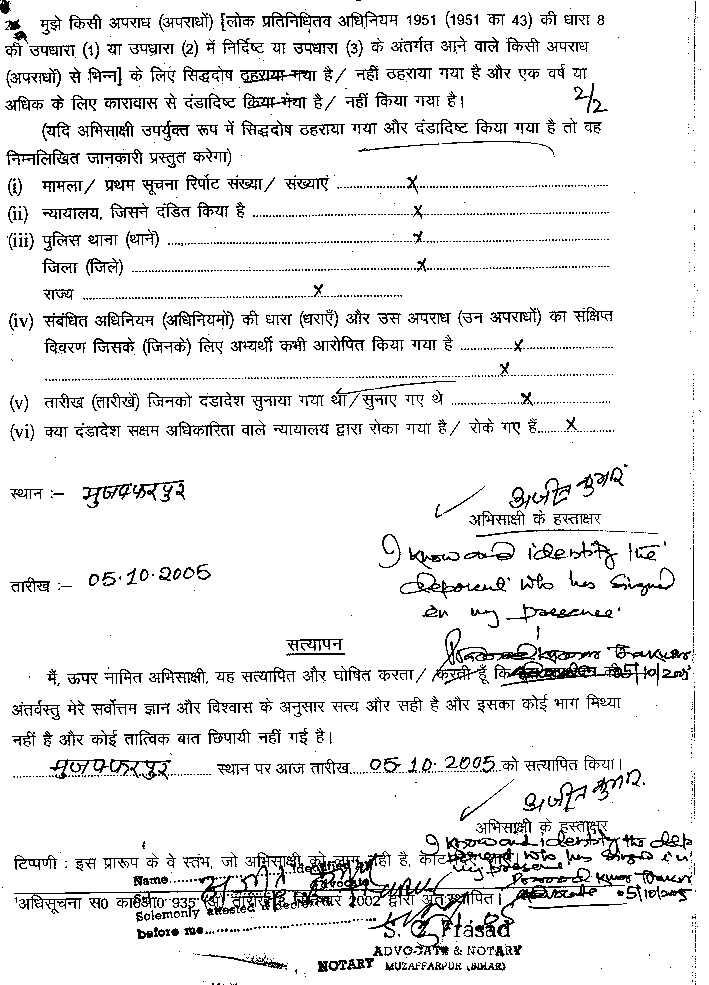 2. मुझे किसी अपराध (अपराधों) [लोक प्रतिनिधितव अधिनियम 1951 (1951 का 43) की धारा 8
की उपधारा (1) या उपधारा (2) में निर्दिष्ट या उपधारा (3) के अंतर्गत आने वाले किसी अपराध
(अपराधों) से भिन्न] के लिए सिद्धदोष ठहराया गया है/ नहीं ठहराया गया है और एक वर्ष या
अधिक के लिए कारावास से दंडादिष्ट किया गया है/ नहीं किया गया है।
2/2
(यदि अभिसाक्षी उपर्युक्त रूप में सिद्धदोष ठहराया गया और दंडादिष्ट किया गया है तो वह
निम्नलिखित जानकारी प्रस्तुत करेगा)
(i) मामला/ प्रथम सूचना रिर्पोट संख्या/ संख्याएं ..................x..................
(ii) न्यायालय, जिसने दंडित किया है ..................x..................
(iii) पुलिस थाना (थाने) ..................x..................
जिला (जिले) ..................x..................
राज्य ..................x..................
(iv) संबंधित अधिनियम (अधिनियमों) की धारा (धराएँ) और उस अपराध (उन अपराधों) का संक्षिप्त
विवरण जिसके (जिनके) लिए अभ्यर्थी कभी आरोपित किया गया है ..........x..........
..................x..................
(v) तारीख (तारीखें) जिनको दंडादेश सुनाया गया था/ सुनाए गए थे ..........x..........
(vi) क्या दंडादेश सक्षम अधिकारिता वाले न्यायालय द्वारा रोका गया है/ रोके गए हैं......x......
स्थान :– मुजफ्फरपुर
अजीत कुमार
अभिसाक्षी के हस्ताक्षर
I know and identity the
तारीख :– 05.10.2005
deponent who has signed
in my presence.
सत्यापन
05/10/2005
मैं, ऊपर नामित अभिसाक्षी, यह सत्यापित और घोषित करता/ करती हूँ कि
अंतर्वस्तु मेरे सर्वोत्तम ज्ञान और विश्वास के अनुसार सत्य और सही है और इसका कोई भाग मिथ्या
नहीं है और कोई तात्विक बात छिपायी नहीं गई है।
मुजफ्फरपुर स्थान पर आज तारीख 05.10.2005 को सत्यापित किया।
अजीत कुमार
अभिसाक्षी के हस्ताक्षर
I know and identity the
who has signed in
my presence
टिप्पणी : इस प्रारूप के वे स्तंभ, जो अभिसाक्षी को लागू नहीं है,
Name
Advocate 05/10/2005
¹अधिसूचना स0 का0आ0 935 2002 द्वारा अंतःस्थापित।
Solemonly attested
before me
S. C. Prasad
ADVOCATE & NOTARY
NOTARY MUZAFFARPUR (BIHAR)